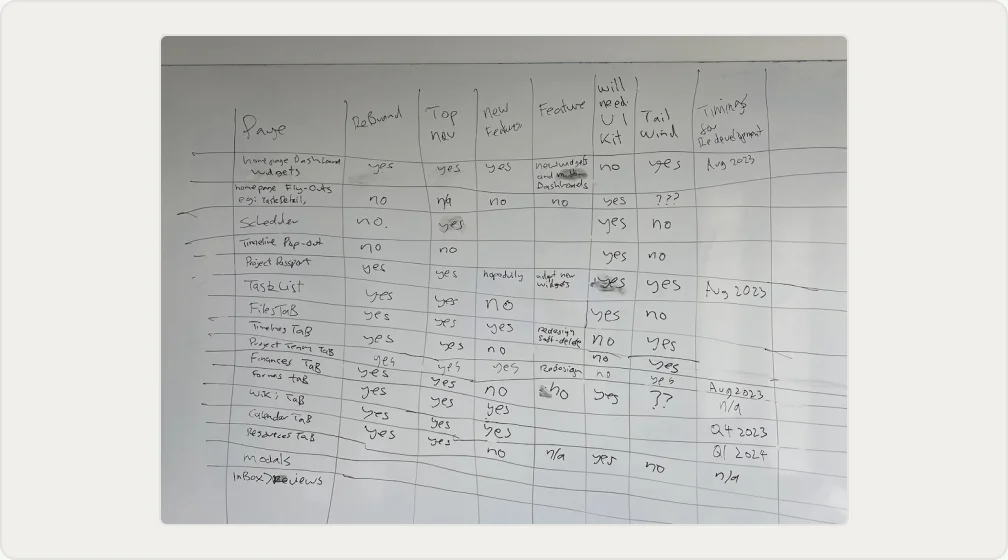 Page ReBrand Top nav New Features Feature will need UI Kit Tail Wind Timings for Redevelopment
homepage Dashboard widgets yes yes yes new widgets and Dashboards no yes Aug 2023
homepage Fly-Outs eg: TaskDetail, no n/a no no yes ???
Schedder no. yes yes no
Timeline Pop-out no no yes no
Project Passport yes yes hopefully adapt new widgets yes yes
Task List yes yes no Aug 2023
Files TaB yes yes yes yes no
Timelines TaB yes yes no redesign soft-delete no yes
Project Team TaB yes yes yes redesign no yes
Finances TaB yes yes no no no yes
Formes taB yes yes yes yes ?? Aug 2023
Wiki TaB yes yes yes n/a
Calendar TaB yes yes Q4 2023
Resources TaB no n/a yes no Q1 2024
modals n/a
InBox/Reviews